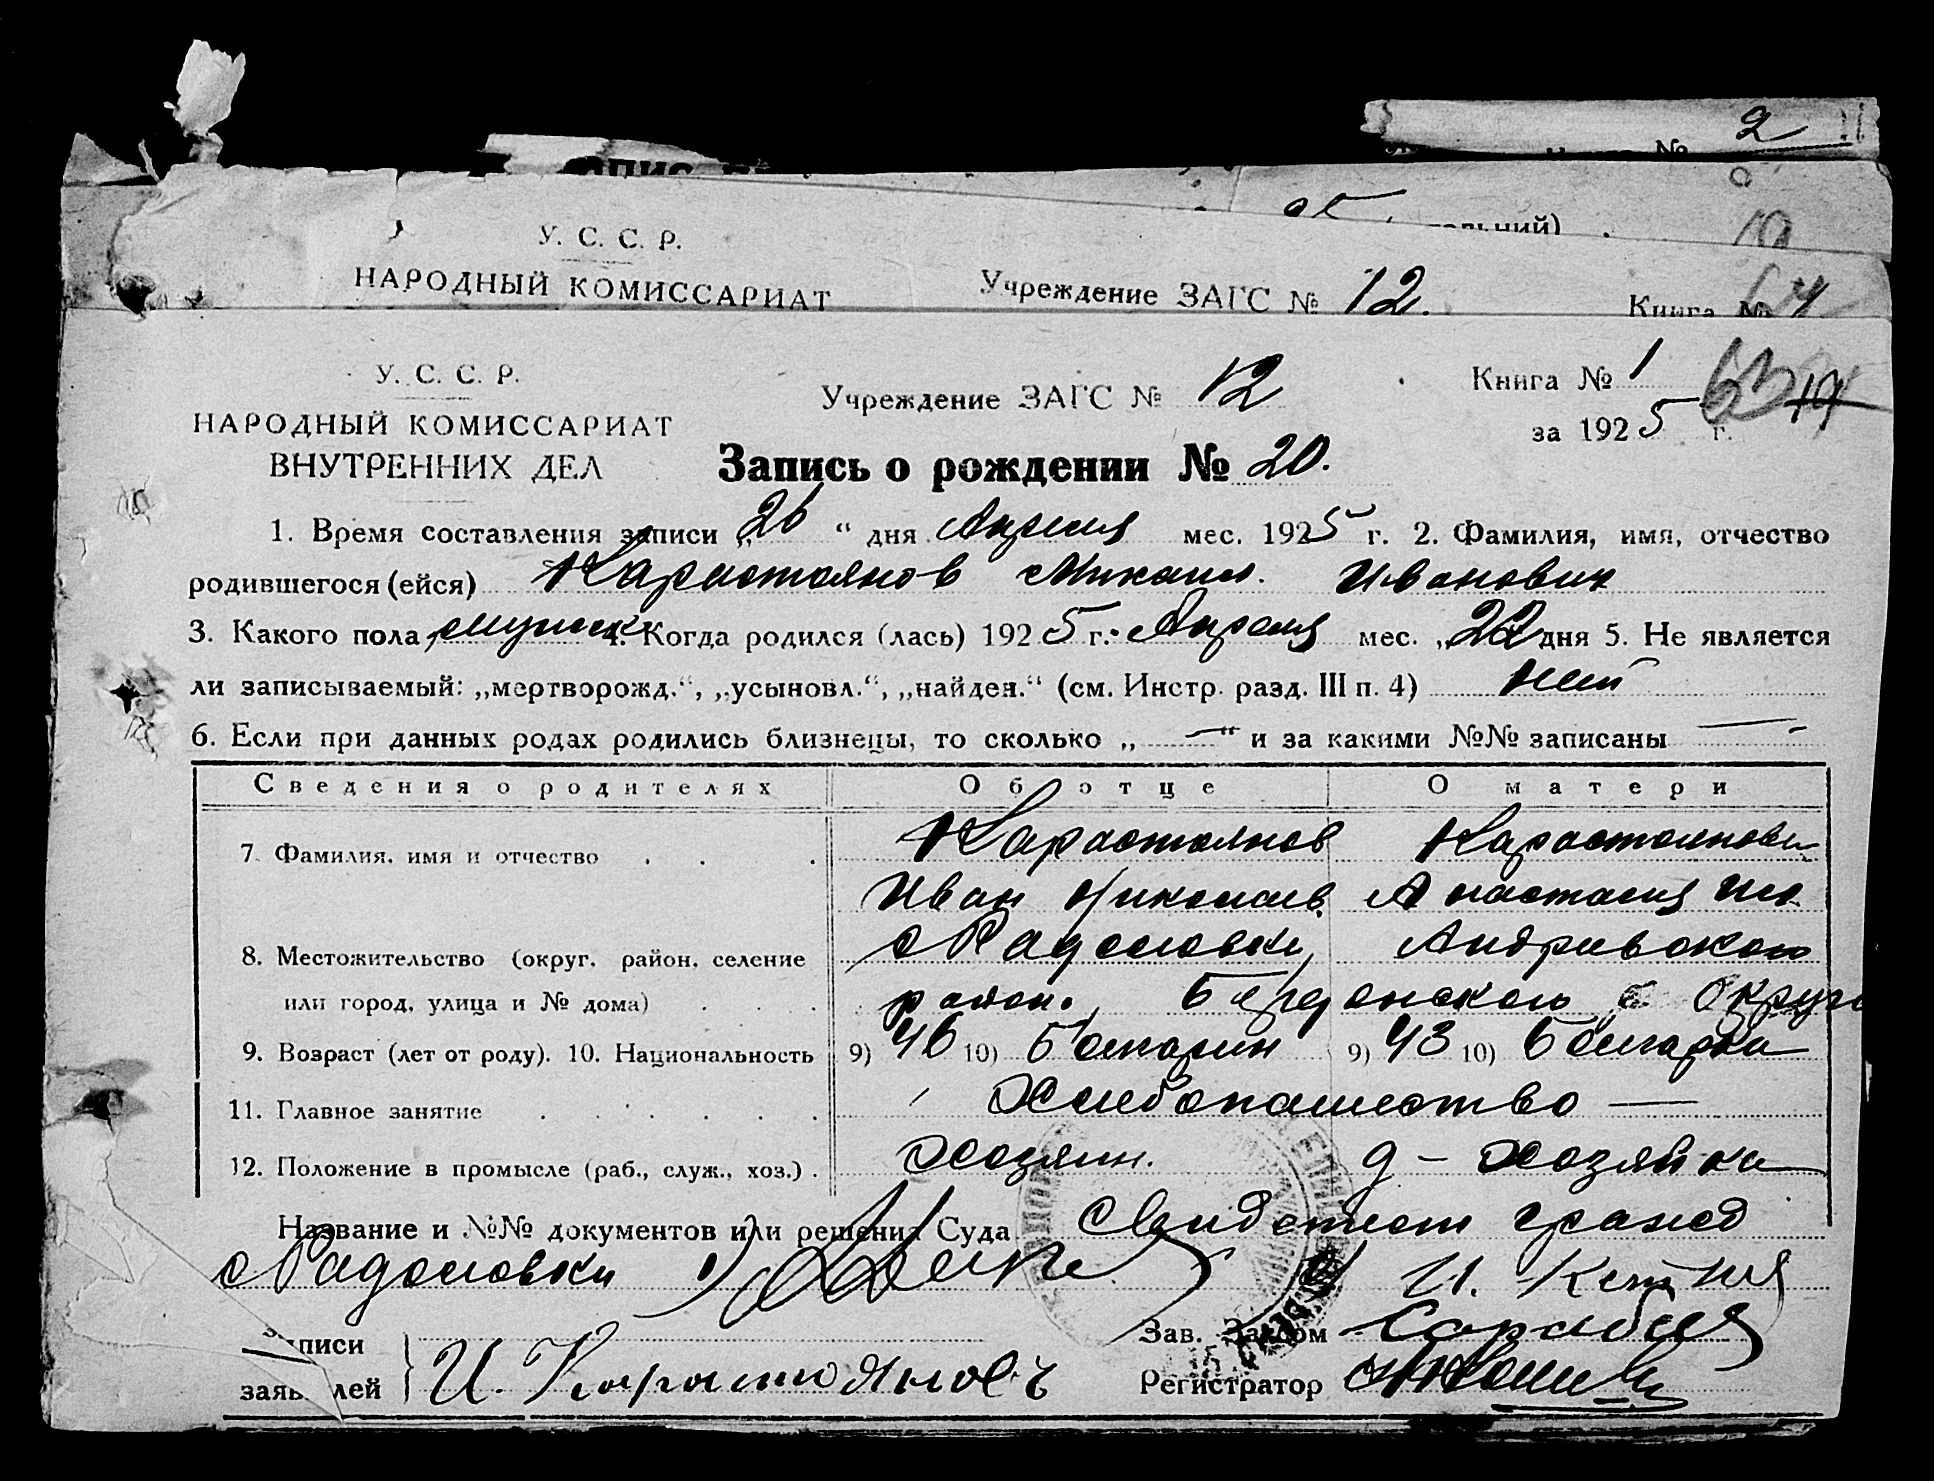 2
№
тельний)
19
У. С. С. Р.
НАРОДНЫЙ КОМИССАРИАТ
Учреждение ЗАГС № 12.
Книга №
У. С. С. Р.
НАРОДНЫЙ КОМИССАРИАТ
ВНУТРЕННИХ ДЕЛ
Учреждение ЗАГС № 12
Книга № 1
63
за 1925 г.
Запись о рождении № 20.
1. Время составления записи „26“ дня Апреля мес. 1925 г. 2. Фамилия, имя, отчество
родившегося (ейся) Карастоянов Михаил. Иванович
3. Какого пола мужск 4. Когда родился (лась) 1925 г. Апреля мес. „22 дня 5. Не является
ли записываемый: „мертворожд.“, „усыновл.“, „найден.“ (см. Инстр. разд. III п. 4) нет
6. Если при данных родах родились близнецы, то сколько „ — “ и за какими №№ записаны —
Сведения о родителях Об отце О матери
7. Фамилия, имя и отчество Карастоянов Карастоянова
Иван Николаев. Анастасия
с Радоловки Андриевского
8. Местожительство (округ, район, селение
или город, улица и № дома) район. Бердянского Округа
9. Возраст (лет от роду). 10. Национальность 9) 46 10) Болгарин 9) 43 10) Болгарка
11. Главное занятие Хлебопашество —
12. Положение в промысле (раб., служ., хоз.) Хозяин. д - хозяйка
Название и №№ документов или решения Суда гражд
с Радоловки 1) И.
записи
Зав. Загсом
заявлей И. Карастояновъ
Регистратор